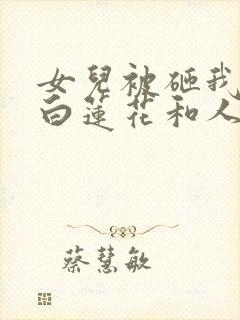 女兒被砸我
白蓮花和人
蔡慧敏